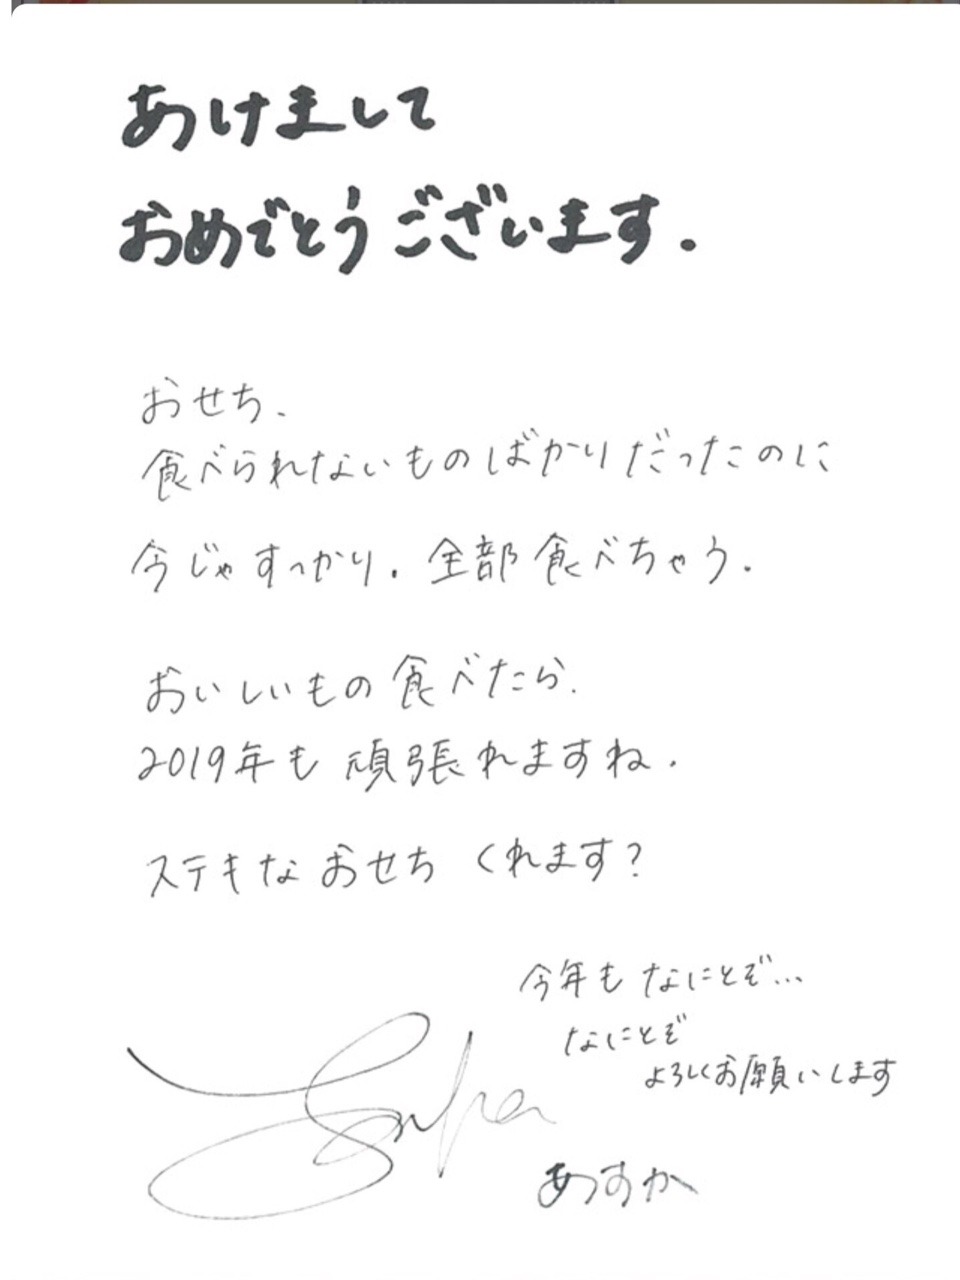 あけまして
おめでとうございます.
おせち、
食べられないものばかりだったのに
今じゃすっかり. 全部食べちゃう.
おいしいもの食べたら、
2019年も頑張れますね.
ステキなおせち くれます?
今年も なにとぞ...
なにとぞ
よろしくお願いします
あすか